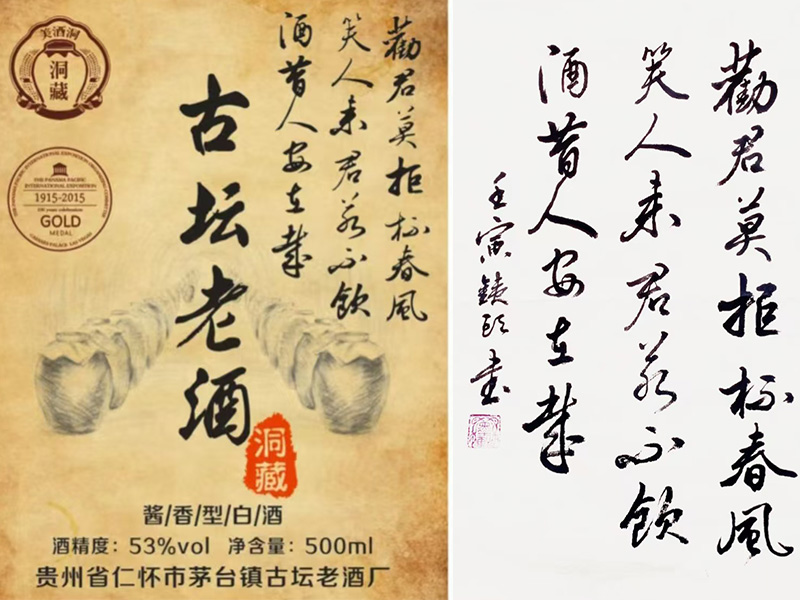 美酒洞
洞藏
THE PANAMA PACIFIC
INTERNATIONAL EXPOSITION
1915-2015
100 years celebration
GOLD
MEDAL
CAESARS PALACE LAS VEGAS
勸君莫拒杯春風
笑人来君若不飲
酒昔人安在哉
古坛老酒
洞藏
酱/香/型/白/酒
酒精度：53%vol 净含量：500ml
贵州省仁怀市茅台镇古坛老酒厂
勸君莫拒杯春風
笑人来君若不飲
酒昔人安在哉
壬寅 書